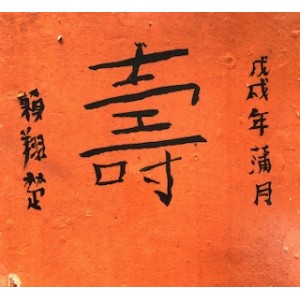 戊戌年蒲月
壽
賴翔楚